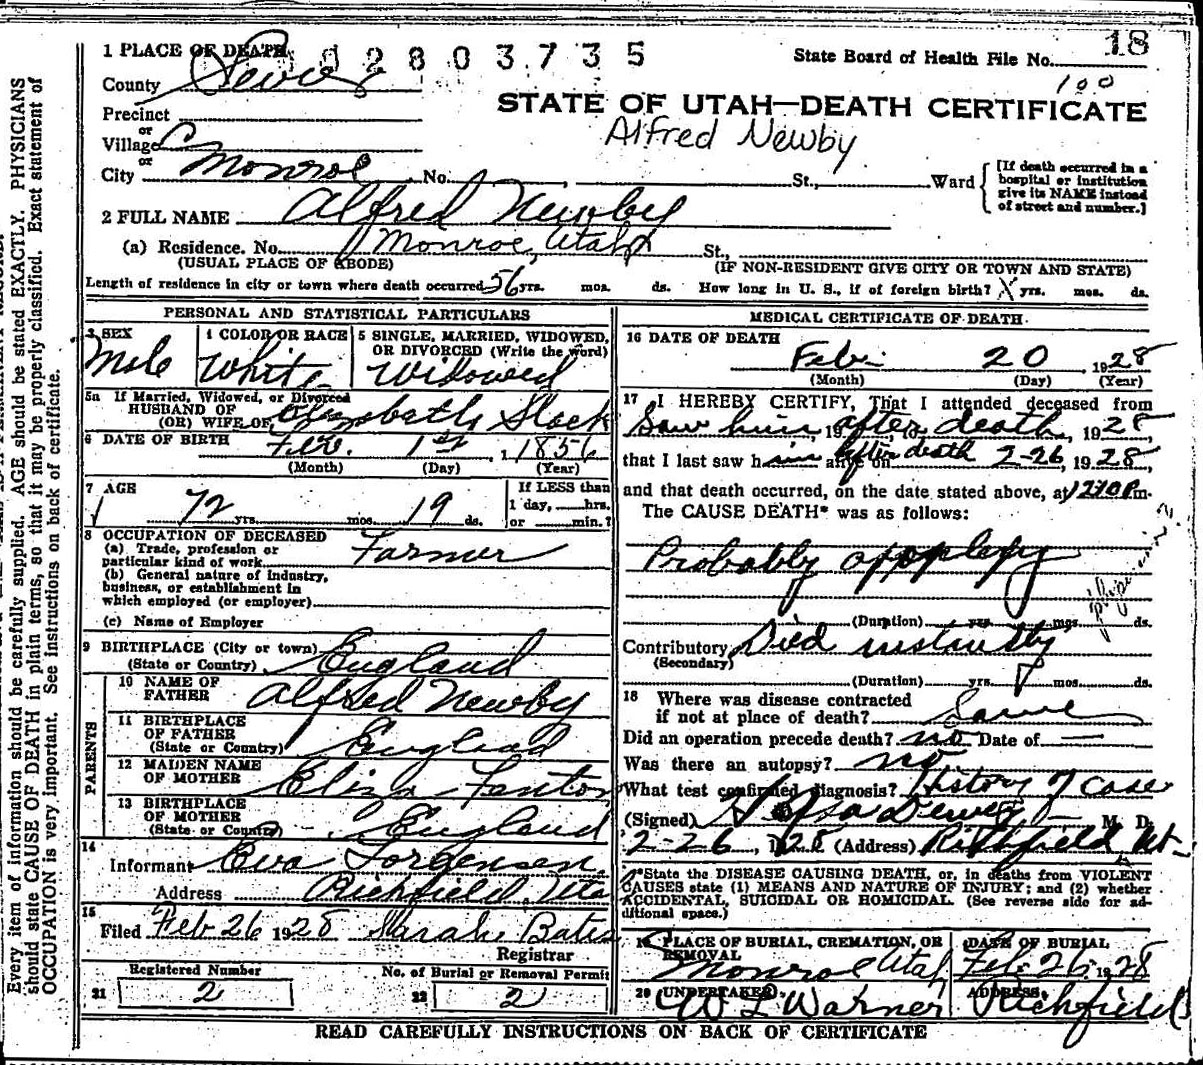 1 PLACE OF DEATH 2803735
State Board of Health File No. 18
County Sevier
100
STATE OF UTAH—DEATH CERTIFICATE
Precinct
Alfred Newby
or
Village
or
City Monroe No. St., Ward
[If death occurred in a
hospital or institution
give its NAME instead
of street and number.]
2 FULL NAME Alfred Newby
(a) Residence. No. Monroe, Utah St.,
(USUAL PLACE OF ABODE) (IF NON-RESIDENT GIVE CITY OR TOWN AND STATE)
Length of residence in city or town where death occurred 56 yrs. mos. ds. How long in U. S., if of foreign birth? X yrs. mos. ds.
PERSONAL AND STATISTICAL PARTICULARS
3 SEX
Male
4 COLOR OR RACE
White
5 SINGLE, MARRIED, WIDOWED,
OR DIVORCED (Write the word)
Widowed
5a If Married, Widowed, or Divorced
HUSBAND OF
(OR) WIFE OF Elizabeth Slack
6 DATE OF BIRTH Feb. 1st, 1856
(Month) (Day) (Year)
7 AGE
72 yrs. mos. 19 ds.
If LESS than
1 day, hrs.
or min.?
8 OCCUPATION OF DECEASED
(a) Trade, profession or
particular kind of work Farmer
(b) General nature of industry,
business, or establishment in
which employed (or employer)
(c) Name of Employer
9 BIRTHPLACE (City or town)
(State or Country) England
PARENTS
10 NAME OF
FATHER Alfred Newby
11 BIRTHPLACE
OF FATHER
(State or Country) England
12 MAIDEN NAME
OF MOTHER Eliza Fenton
13 BIRTHPLACE
OF MOTHER
(State or Country) England
14
Informant Eva Jorgensen
Address Richfield, Uta
15
Filed Feb 26 1928 Sarah Bates
Registrar
Registered Number
21 2
No. of Burial or Removal Permit
22 2
MEDICAL CERTIFICATE OF DEATH
16 DATE OF DEATH
Feb. 20 1928
(Month) (Day) (Year)
17 I HEREBY CERTIFY, That I attended deceased from
Saw him, 19 after, to death, 1928,
that I last saw him alive on after death 2-26, 1928,
and that death occurred, on the date stated above, at m.
The CAUSE DEATH* was as follows:
Probably apoplexy
(Duration) yrs. mos. ds.
Contributory Died instantly
(Secondary)
(Duration) yrs. mos. ds.
18 Where was disease contracted
if not at place of death? Same
Did an operation precede death? no Date of —
Was there an autopsy? no
What test confirmed diagnosis? History of case
(Signed) Dewey M. D.
2-26, 1928 (Address) Richfield Ut
*State the DISEASE CAUSING DEATH, or, in deaths from VIOLENT
CAUSES state (1) MEANS AND NATURE OF INJURY; and (2) whether
ACCIDENTAL, SUICIDAL OR HOMICIDAL. (See reverse side for ad-
ditional space.)
19 PLACE OF BURIAL, CREMATION, OR
REMOVAL
Monroe Utah
DATE OF BURIAL
Feb. 26, 1928
20 UNDERTAKER
W L Warner
ADDRESS
Richfield
READ CAREFULLY INSTRUCTIONS ON BACK OF CERTIFICATE
Every item of information should be carefully supplied. AGE should be stated EXACTLY. PHYSICIANS
should state CAUSE OF DEATH in plain terms, so that it may be properly classified. Exact statement of
OCCUPATION is very important. See instructions on back of certificate.